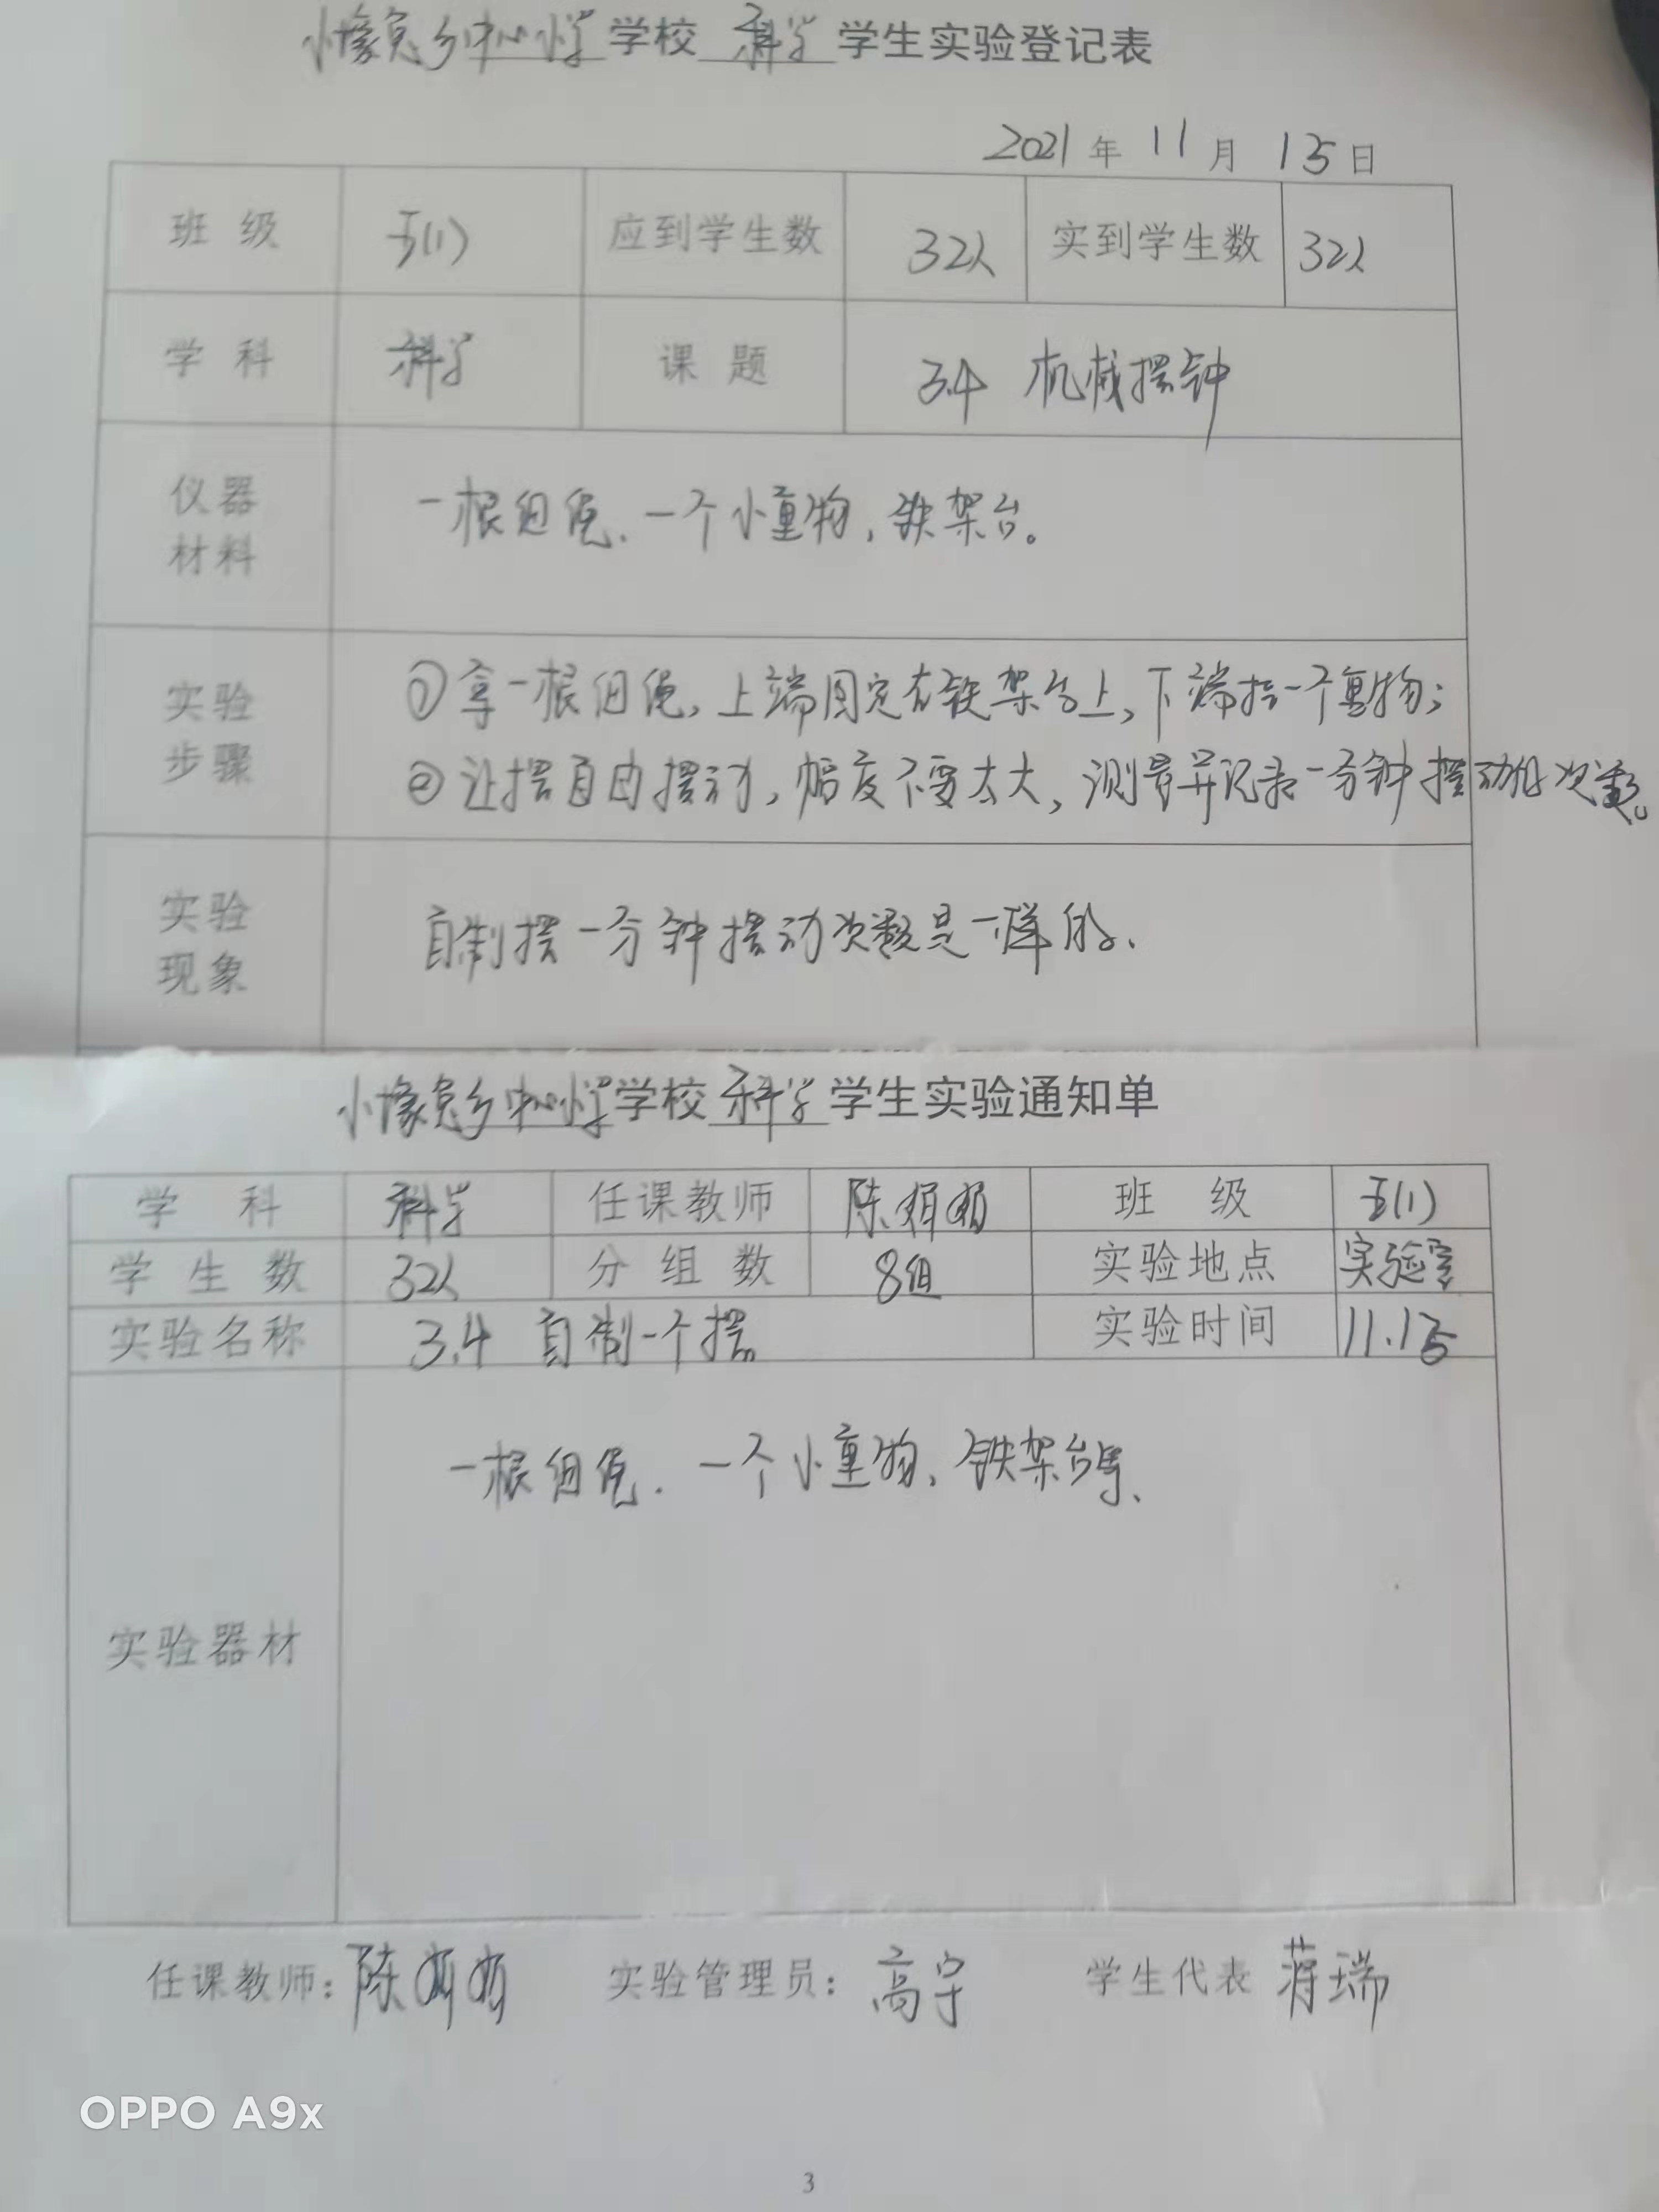 小壕兔乡中心小学学校 科学 学生实验登记表
2021 年 11 月 15 日
班级 五(1) 应到学生数 32人 实到学生数 32人
学科 科学 课题 3.4 机械摆钟
仪器材料 一根细绳、一个小重物,铁架台。
实验步骤 ①拿一根细绳,上端固定在铁架台上,下端挂一个重物;
②让摆自由摆动,幅度不要太大,测量并记录一分钟摆动的次数。
实验现象 自制摆一分钟摆动次数是一样的、
小壕兔乡中心小学学校 科学 学生实验通知单
学科 科学 任课教师 陈娟娟 班级 五(1)
学生数 32人 分组数 8组 实验地点 实验室
实验名称 3.4 自制一个摆 实验时间 11.15
实验器材 一根细绳.一个小重物、铁架台等、
任课教师:陈娟娟 实验管理员:高宇 学生代表 蒋瑞
OPPO A9x
3